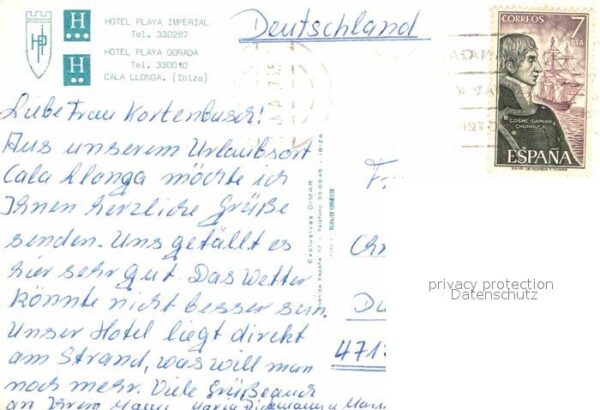 HOTEL PLAYA IMPERIAL
Tel. 330287
HOTEL PLAYA DORADA
Tel. 330010
CALA LLONGA. (Ibiza)
H
H
Deutschland
CORREOS 7 PTA
COSME DAMIAN
CHURRUCA
ESPAÑA
Liebe Frau Kortenbusch!
Aus unserem Urlaubsort
Cala Llonga möchte ich
Ihnen herzliche Grüße
senden. Uns gefällt es
hier sehr gut. Das Wetter
könnte nicht besser sein.
Unser Hotel liegt direkt
am Strand, was will man
noch mehr. Viele Grüße auch
an Ihren Mann. Maria
Exclusivas DIMAR
IBIZA
F
Chr
Du
471
privacy protection
Datenschutz